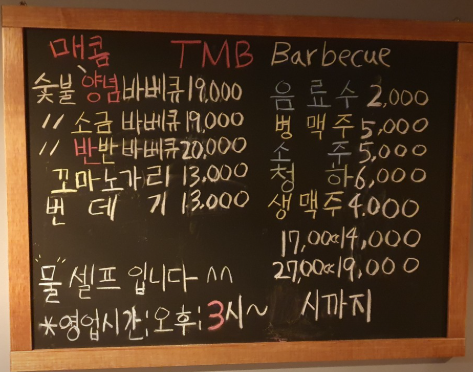 매콤 TMB Barbecue
숯불 양념바베큐 19,000
〃 소금 바베큐 19,000
〃 반반바베큐 20,000
꼬마노가리 13,000
번데기 13,000
음료수 2,000
병맥주 5,000
소주 5,000
청하 6,000
생맥주 4.000
17,00cc 14,000
27,00cc 19,000
"물" 셀프 입니다 ^^
*영업시간;오후;3시~ 시까지